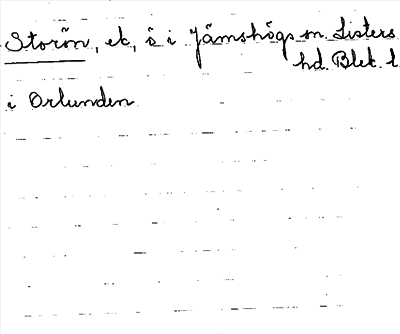 Storön, ek, ö i Jämshögs sn. Listers
hd. Blek. l.
i Orlunden